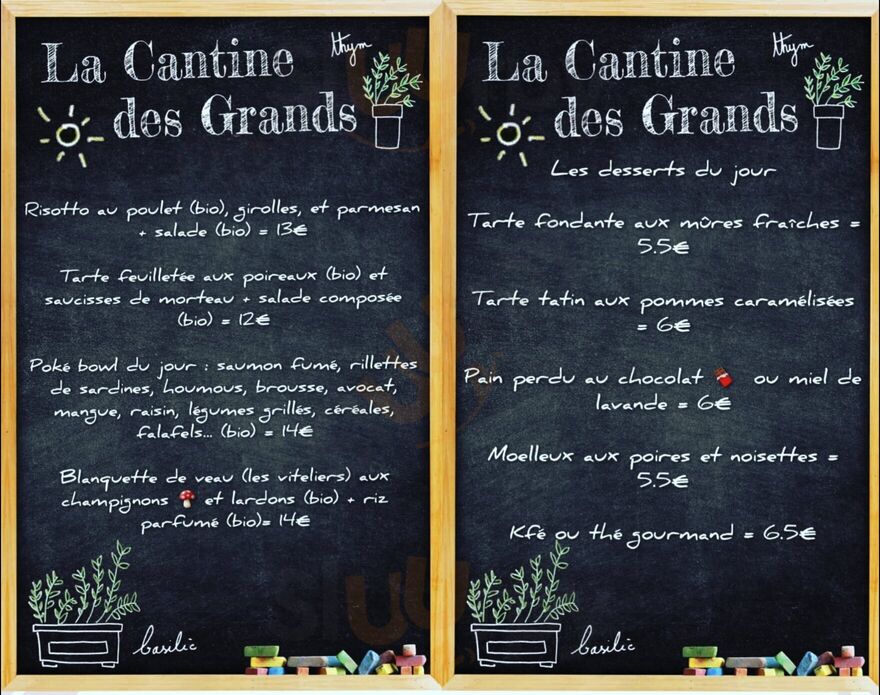 La Cantine
des Grands
thym
Risotto au poulet (bio), girolles, et parmesan
+ salade (bio) = 13€
Tarte feuilletée aux poireaux (bio) et
saucisses de morteau + salade composée
(bio) = 12€
Poké bowl du jour : saumon fumé, rillettes
de sardines, houmous, brousse, avocat,
mangue, raisin, légumes grillés, céréales,
falafels... (bio) = 14€
Blanquette de veau (les viteliers) aux
champignons 🍄 et lardons (bio) + riz
parfumé (bio)= 14€
basilic
La Cantine
des Grands
thym
Les desserts du jour
Tarte fondante aux mûres fraîches =
5.5€
Tarte tatin aux pommes caramélisées
= 6€
Pain perdu au chocolat 🍫 ou miel de
lavande = 6€
Moelleux aux poires et noisettes =
5.5€
Kfé ou thé gourmand = 6.5€
basilic